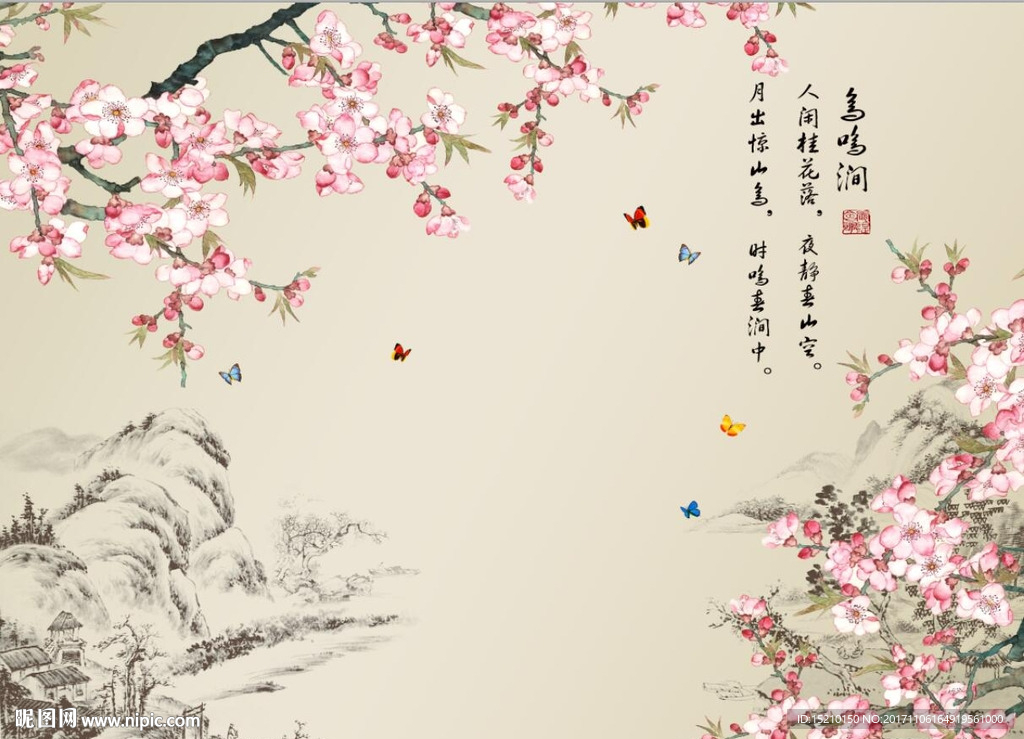 鸟鸣涧
人闲桂花落，夜静春山空。
月出惊山鸟，时鸣春涧中。
昵图网 www.nipic.com
ID:15210150 NO:20171106164919561000